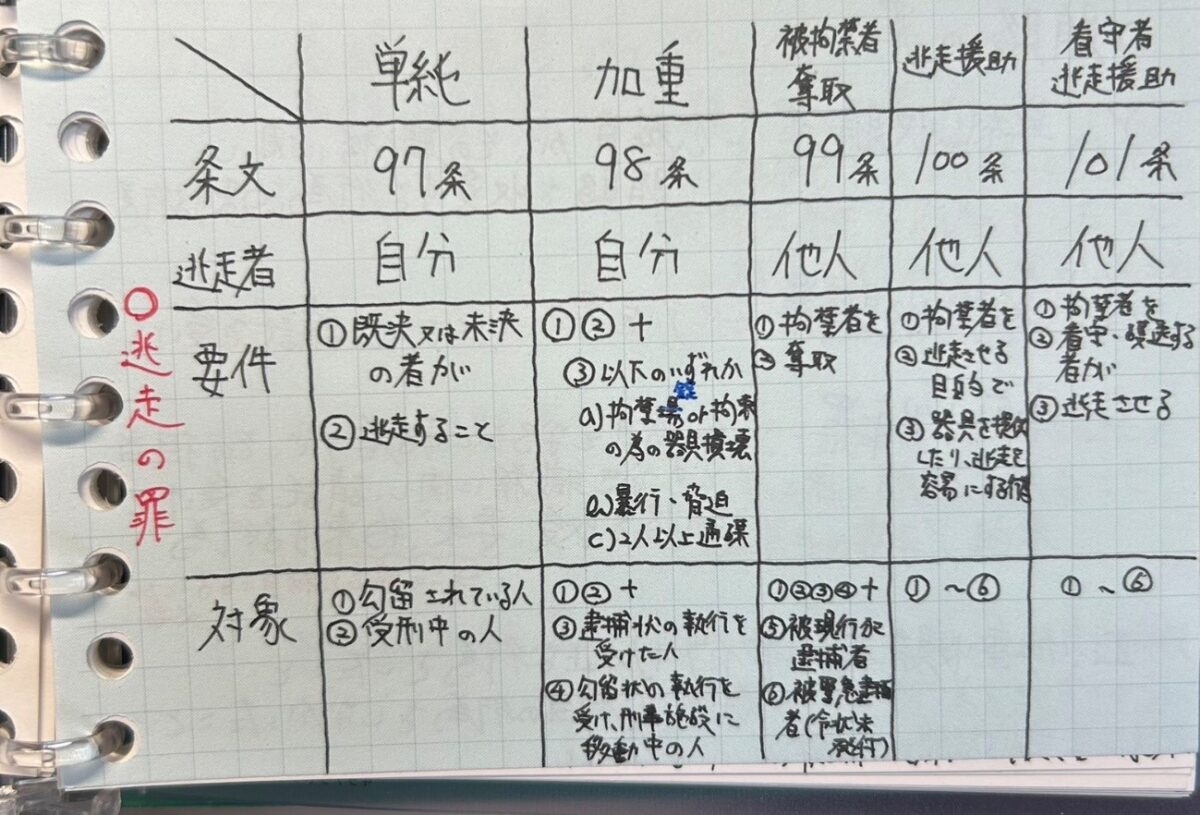 ○逃走の罪
単純
加重
被拘禁者
奪取
逃走援助
看守者
逃走援助
条文
97条
98条
99条
100条
101条
逃走者
自分
自分
他人
他人
他人
要件
①既決又は未決
の者が
②逃走すること
①②+
③以下のいずれか
a)拘禁場or拘束
の為の器具損壊
b)暴行・脅迫
c)2人以上通謀
①拘禁者を
②奪取
①拘禁者を
②逃走させる
目的で
③器具を提供
したり、逃走を
容易にする行為
①拘禁者を
②看守・護送する
者が
③逃走させる
対象
①勾留されている人
②受刑中の人
①②+
③逮捕状の執行を
受けた人
④勾留状の執行を
受け、刑事施設に
移動中の人
①②③④+
⑤被現行犯
逮捕者
⑥被緊急逮捕
者(令状未
発行)
①~⑥
①~⑥